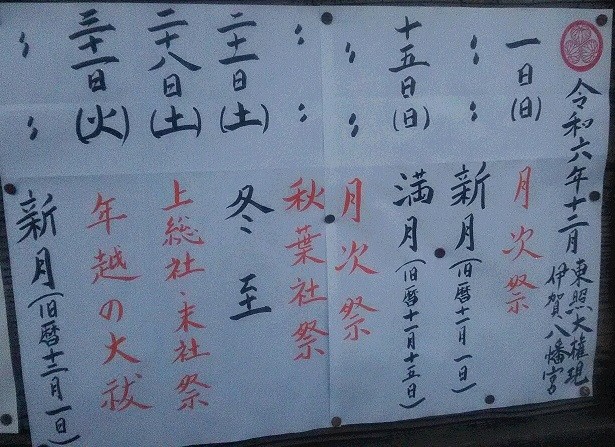 令和六年十二月 東照大権現
伊賀八幡宮
一日(日) 月次祭
〃 〃 新月(旧暦十一月一日)
十五日(日) 満月(旧暦十一月十五日)
〃 〃 月次祭
〃 〃 秋葉社祭
二十一日(土) 冬至
二十八日(土) 上総社・末社祭
三十一日(火) 年越の大祓
〃 〃 新月(旧暦十二月一日)